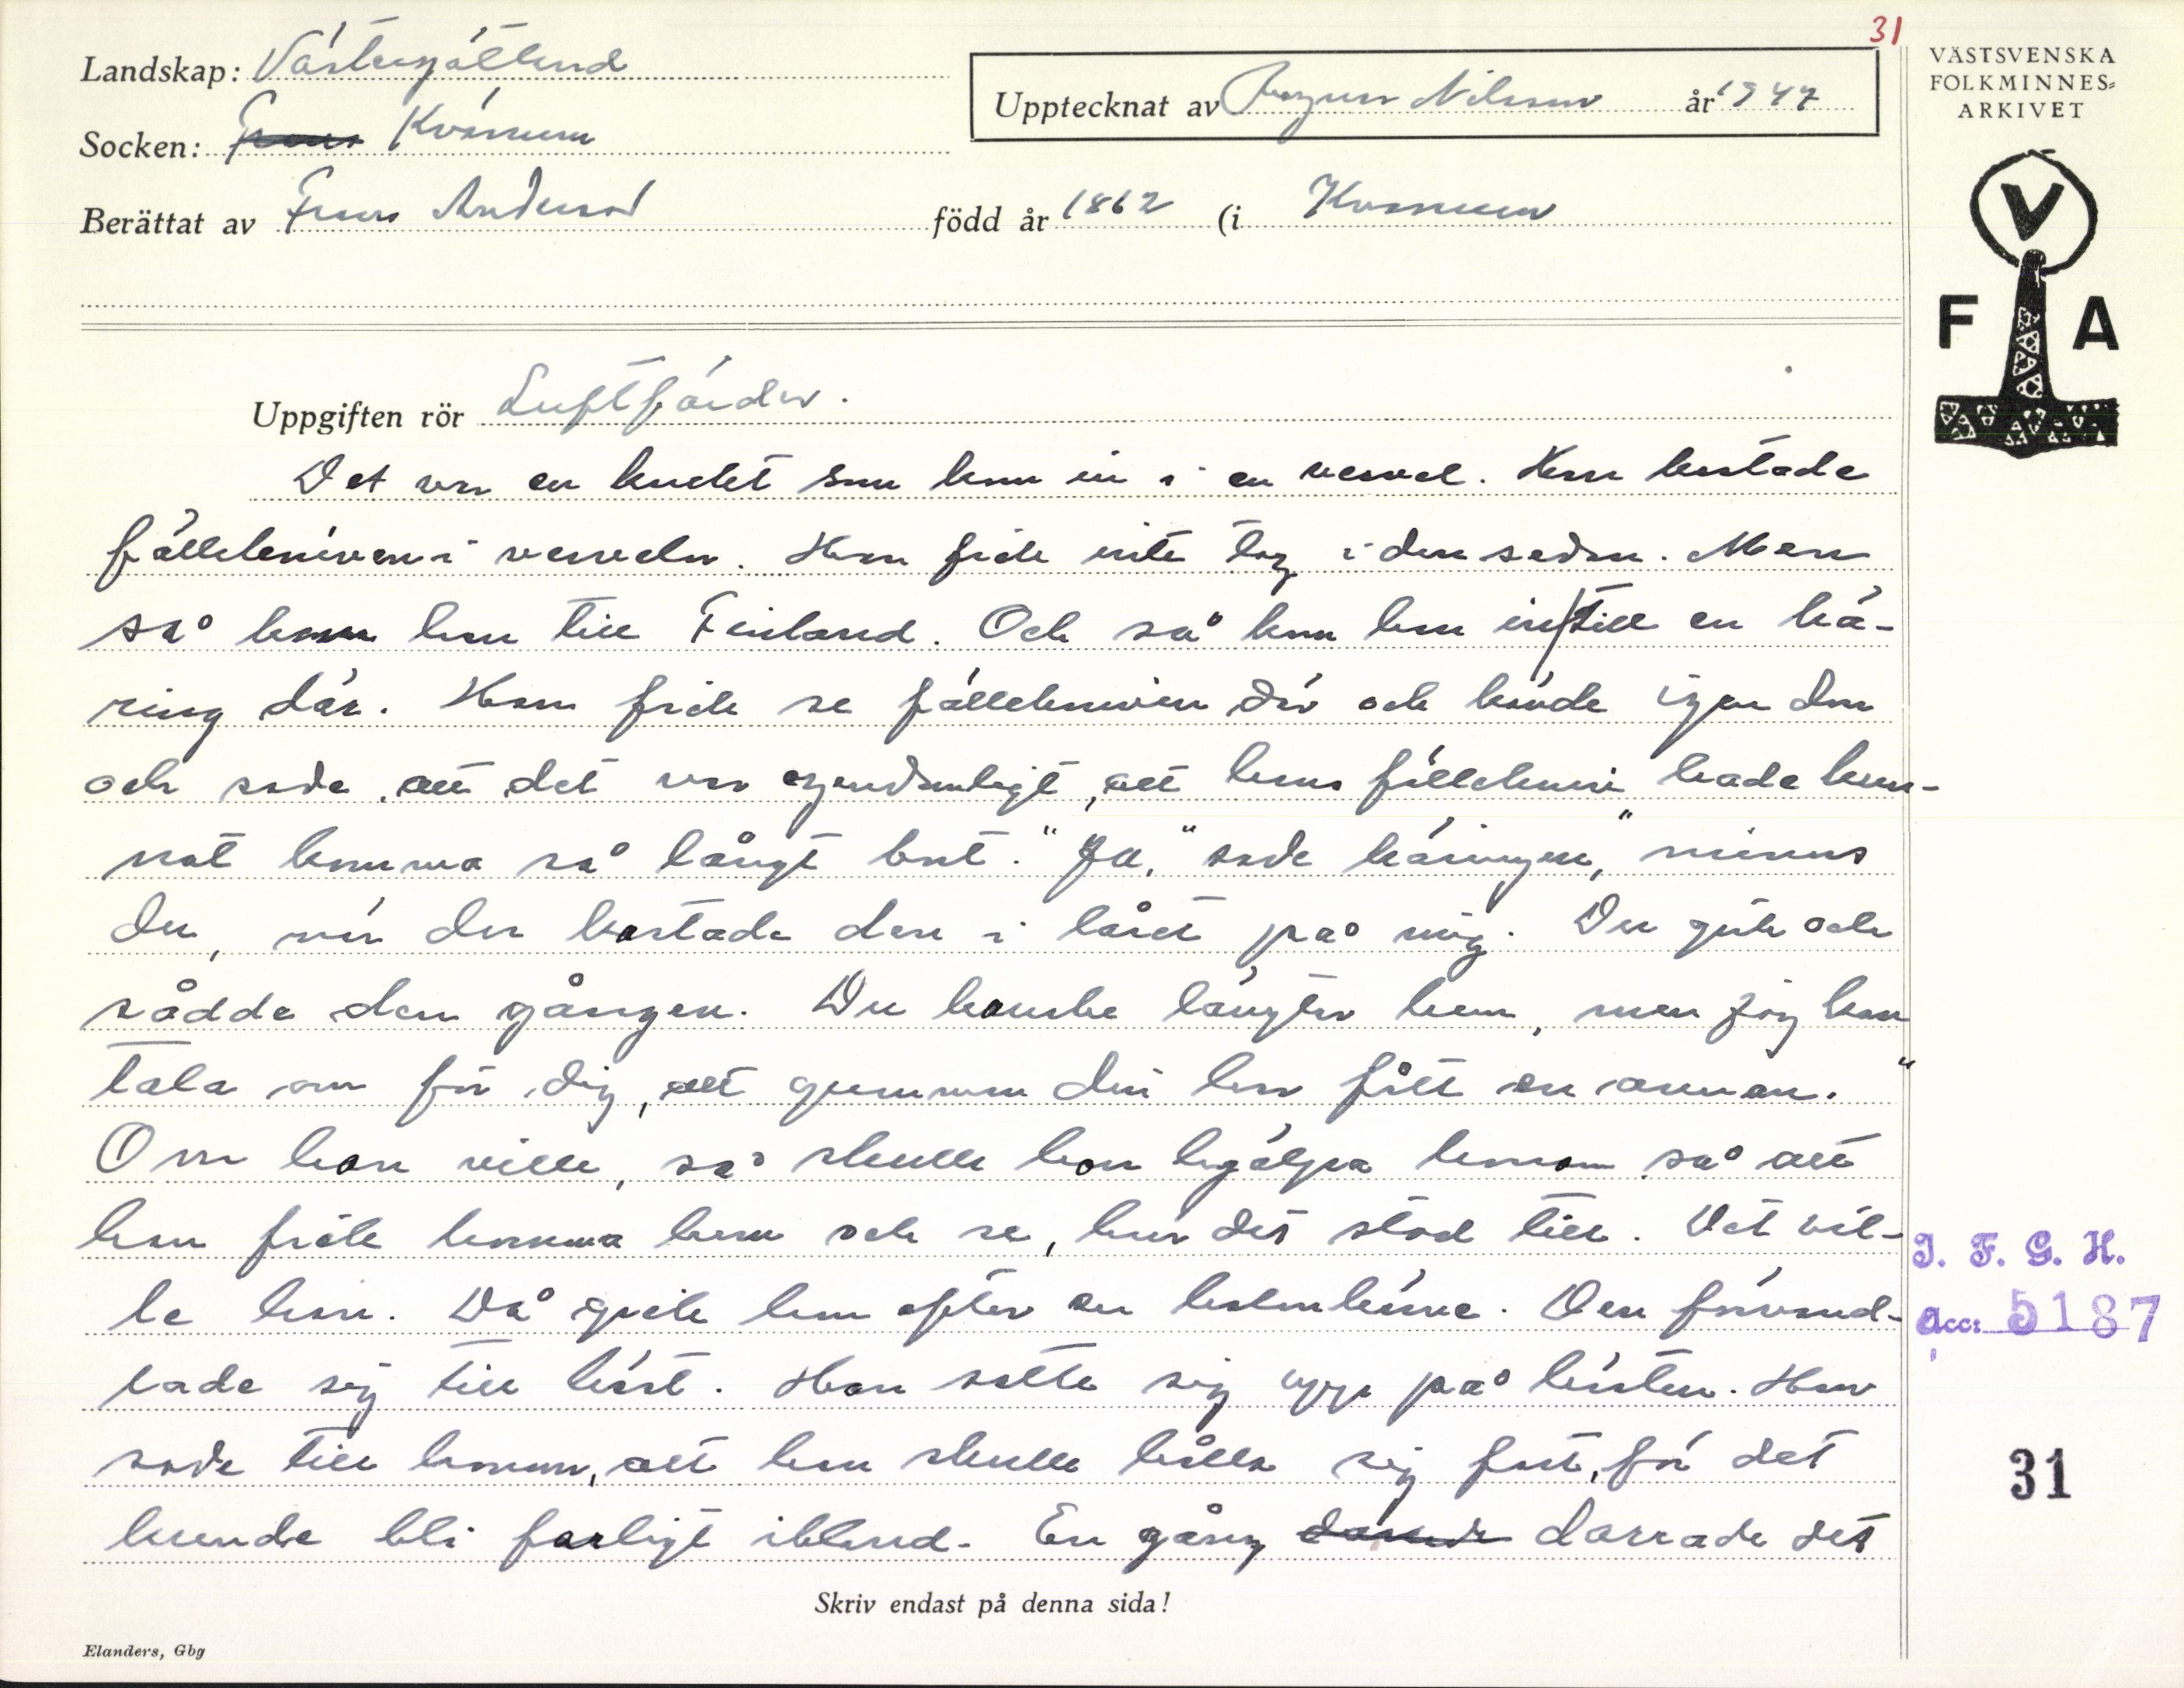 31
Landskap: Västergötland
Socken: Frans Kvänum
Upptecknat av Ragnar Nilsson år 1947
VÄSTSVENSKA
FOLKMINNES=
ARKIVET
Berättat av Frans Anderson född år 1862 (i Kvänum
V
F A
Uppgiften rör Luftfärder.
Det var en knekt som kom in i en vervel. Han kastade
fällekniven i verveln. Han fick inte tag i den sedan. Men
så kom han till Finland. Och så kom han in till en kä-
ring där. Han fick se fällekniven där och kände igen den
och sade, att det var egendomligt, att hans fällekniv hade kun-
nat komma så långt bort. "Ja," sade käringen, "minns
du, när du kastade den i låret på mig. Du gick och
sådde den gången. Du kanske längtar hem, men jag kan
tala om för dig, att gumman din har fått en annan."
Om han ville, så skulle hon hjälpa honom så att
han fick komma hem och se, hur det stod till. Det vil-
le han. Då gick hon efter en halmkärve. Den förvand-
lade sig till häst. Han satte sig upp på hästen. Hon
sade till honom, att han skulle hålla sig fast, för det
kunde bli farligt ibland. En gång darrade det
I. F. G. H.
Acc: 5187
31
Skriv endast på denna sida!
Elanders, Gbg